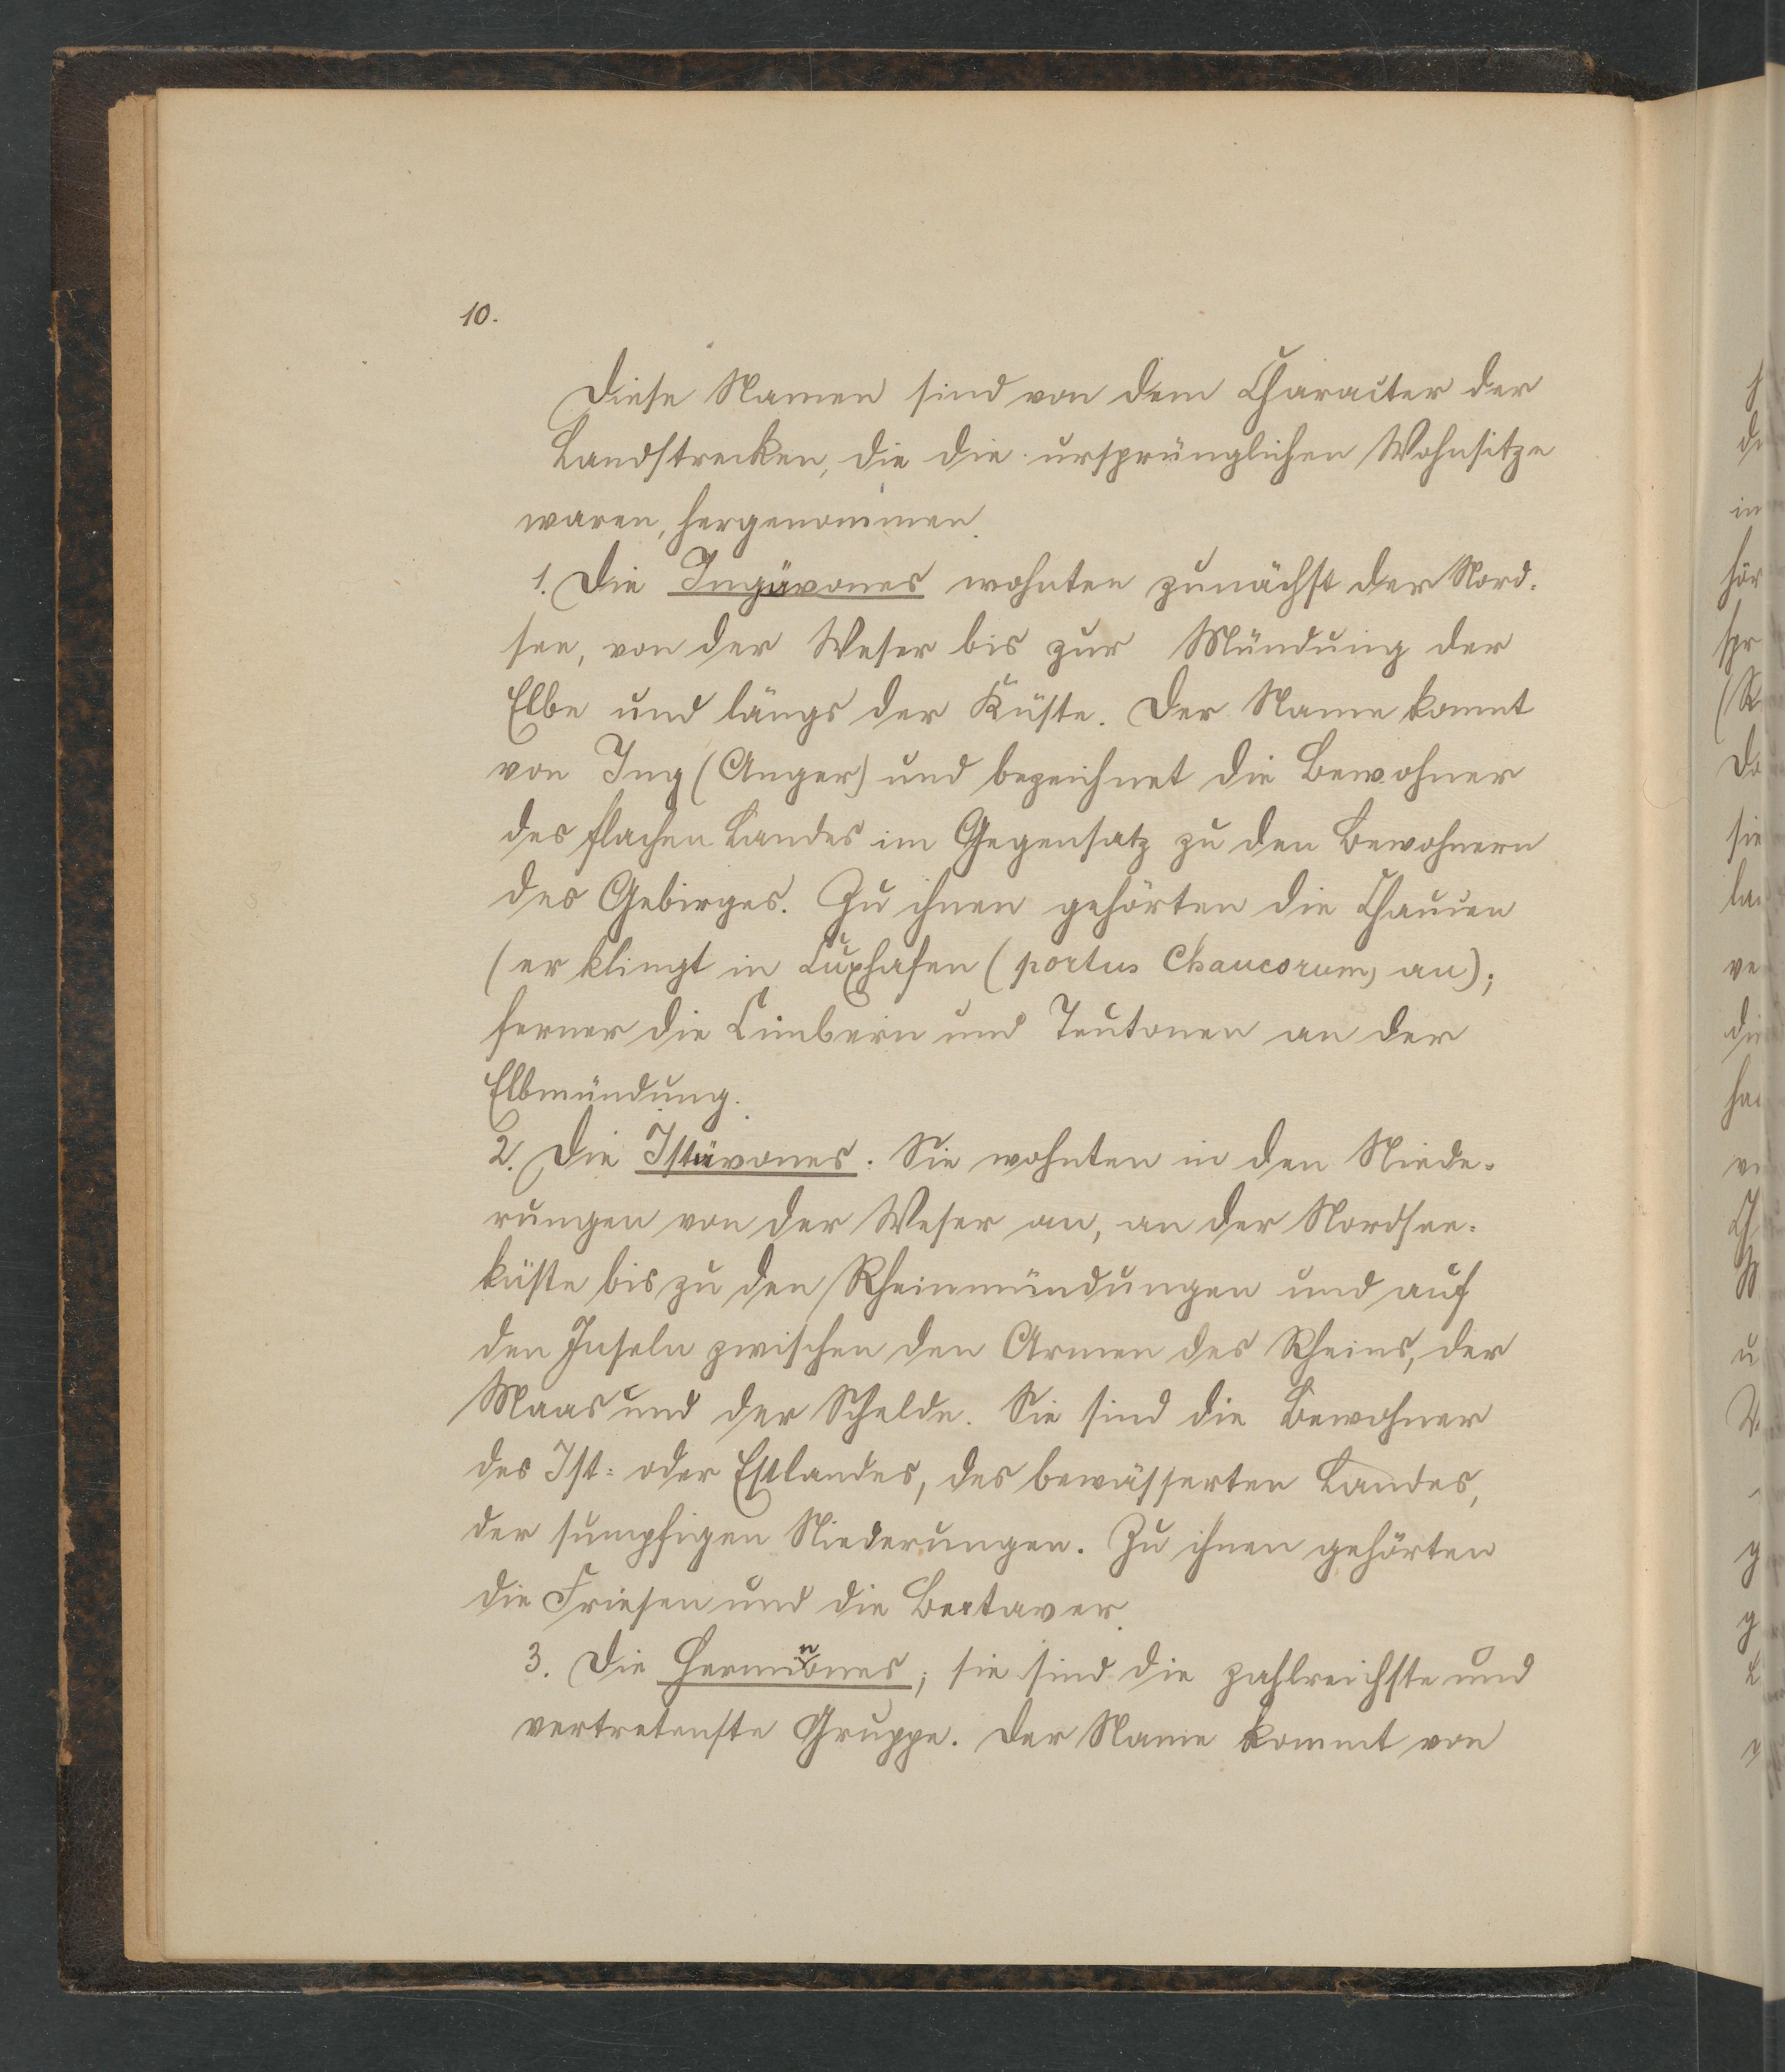 10.
Diese Namen sind von dem Character der
Landstrecken, die die ursprünglichen Wohnsitze
waren, hergenommen.
1. Die Ingävones wohnten zunächst der Nord-
see, von der Weser bis zur Mündung der
Elbe und längs der Küste. Der Name kommt
von Ing (Anger) und bezeichnet die Bewohner
des flachen Landes im Gegensatz zu den Bewohnern
des Gebirges. Zu ihnen gehörten die Chaucen
(er klingt in Cuxhafen (portus Chaucorum) an);
ferner die Cimbern und Teutonen an der
Elbmündung.
2. Die Istävones. Sie wohnten in den Niede-
rungen von der Weser an, an der Nordsee-
küste bis zu den Rheinmündungen und auf
den Inseln zwischen den Armen des Rheins, der
Maas und der Schelde. Sie sind die Bewohner
des Ist- oder Estlandes, des bewässerten Landes,
der sumpfigen Niederungen. Zu ihnen gehörten
die Friesen und die Bataver.
3. Die Herminones; sie sind die zahlreichste und
vertretenste Gruppe. Der Name kommt von